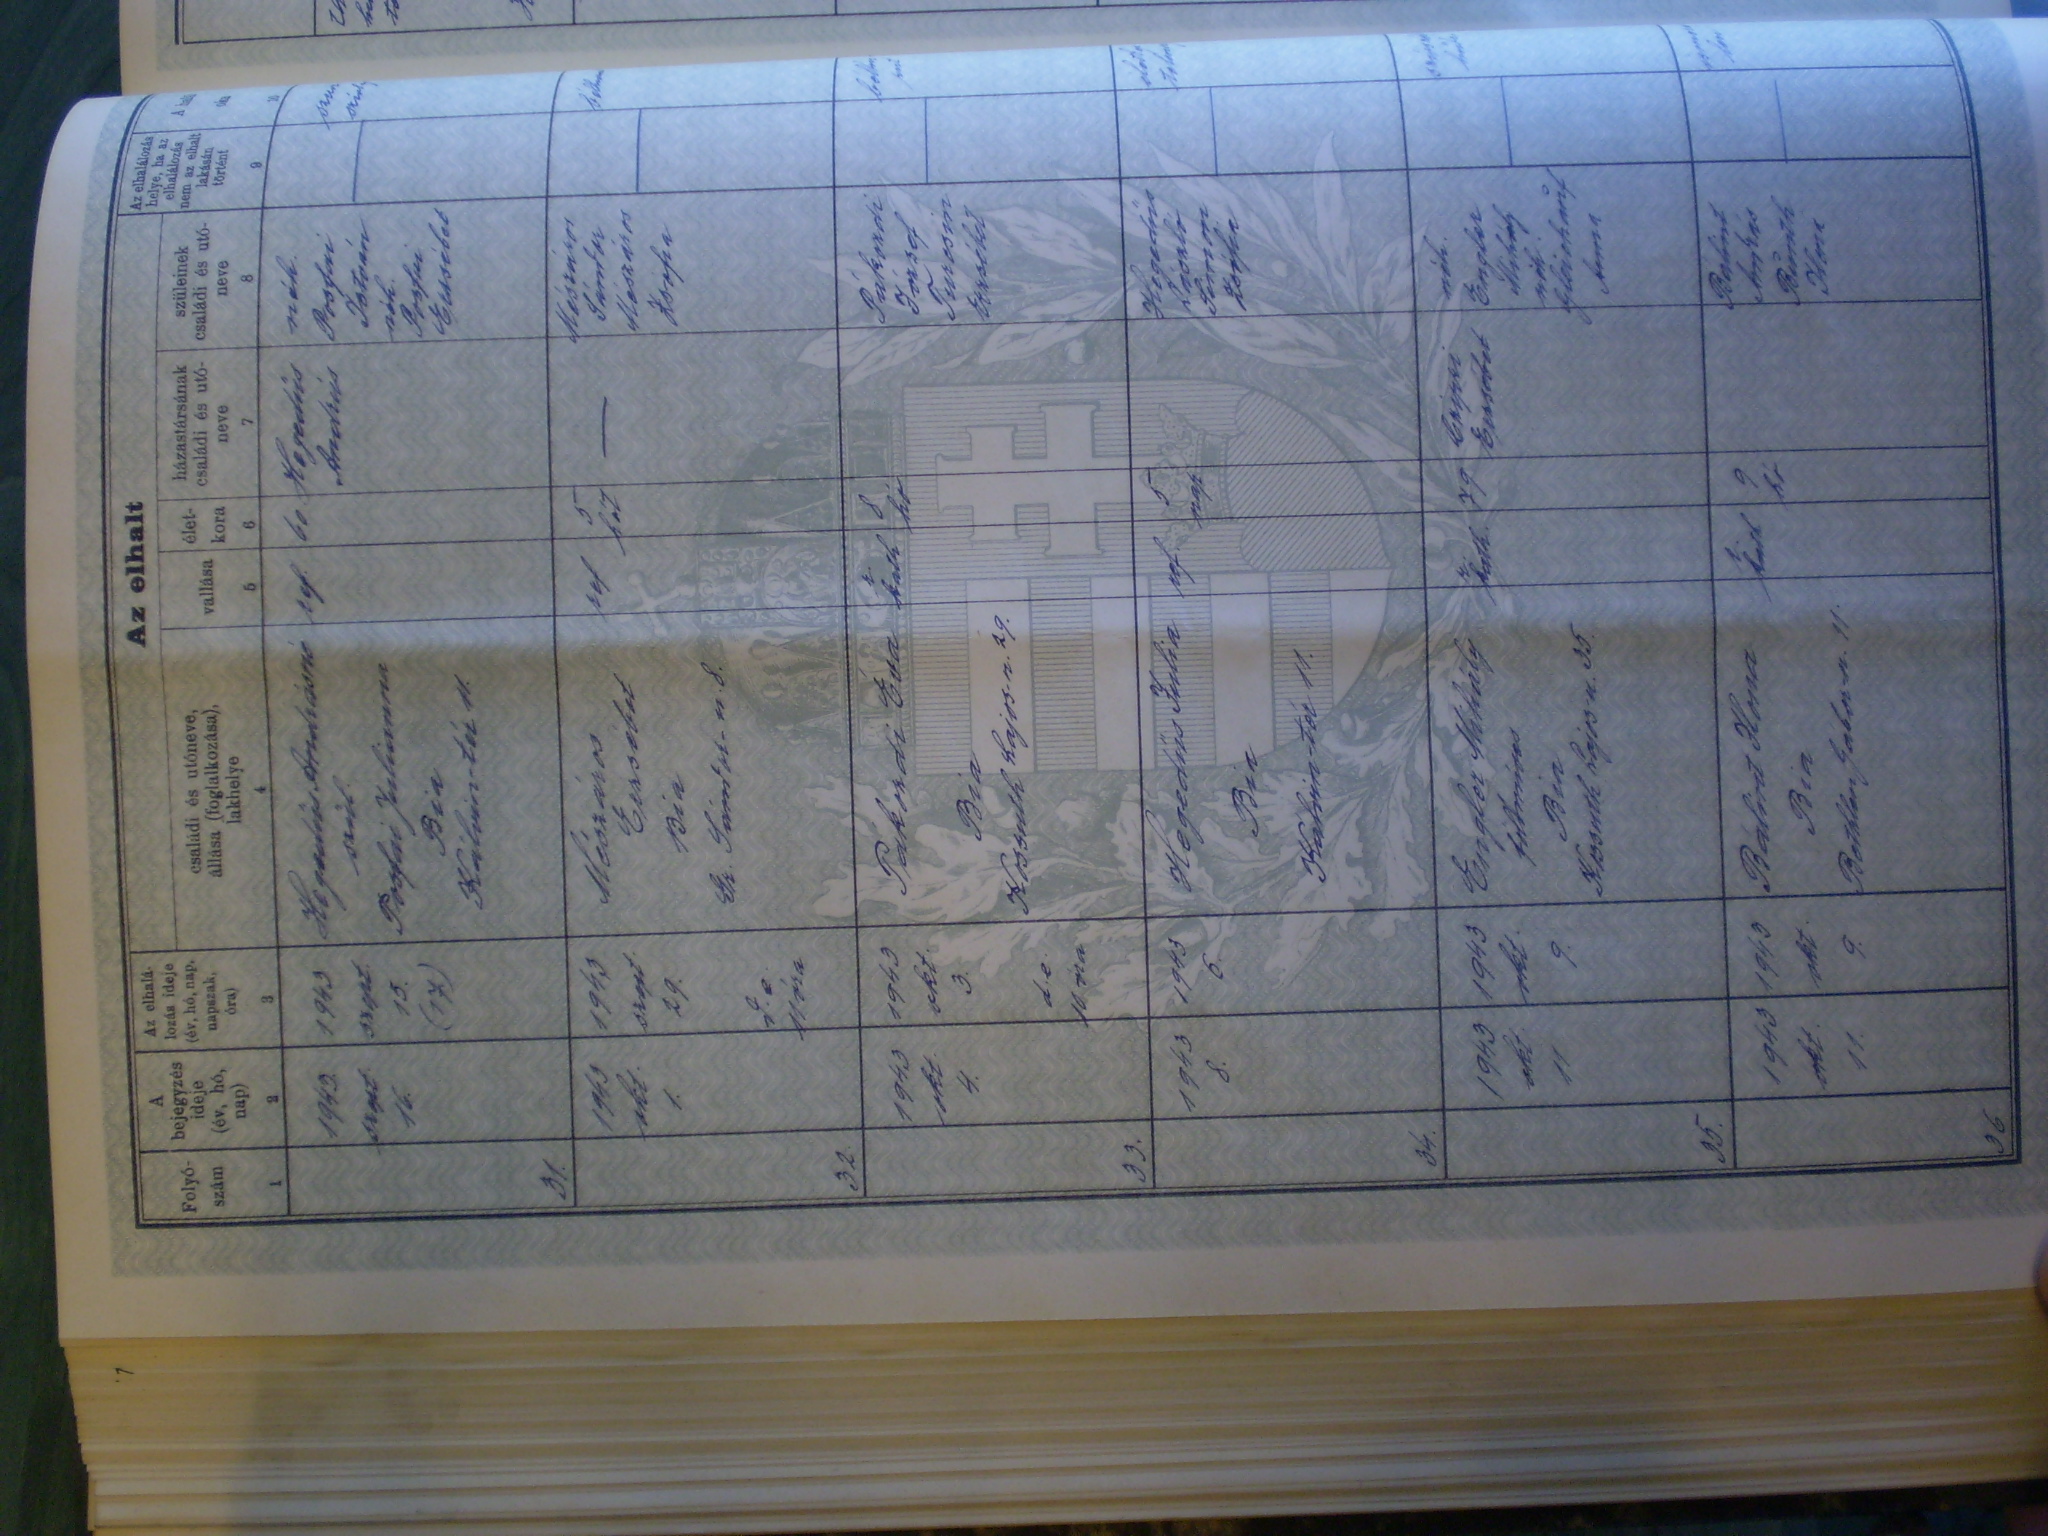 Az elhalt
Folyó-
szám
A
bejegyzés
ideje
(év, hó,
nap)
Az elhalá-
lozás ideje
(év, hó, nap,
napszak,
óra)
családi és utóneve,
állása (foglalkozása),
lakhelye
vallása
élet-
kora
házastársának
családi és utó-
neve
szüleinek
családi és utó-
neve
Az elhalálozás
helye, ha az
elhalálozás
nem az elhalt
lakásán
történt
1
2
3
4
5
6
7
8
9
31.
1943.
szept.
16.
1943
szept.
15.
(17)
Hegedüs Andrásné
szül.
Julianna
Bia
Kálmán-tér 11.
ref.
60
Hegedüs
András
néh.
néh.
Erzsébet
32.
1943
okt.
1.
1943
szept.
29.
d. e.
11 óra
Mészáros
Erzsébet
Bia
Gr. Sándor-u. 8.
ref
5
hét
—
Mészáros
Sándor
Mészáros
Zsófia
33.
1943
okt
4.
1943
okt.
3.
d. e.
10 óra
Pákozdi Éva
Bia
Kossuth Lajos-u. 29.
r.
kath
8
hó
Pákozdi
József
Erzsébet
34.
1943
8.
1943
6.
Hegedüs Julia
Bia
Kálmán-tér 11.
ref.
5
nap
Hegedüs
László
Zsófia
35.
1943
okt.
11
1943
okt.
9.
Engler Mihály
Bia
Kossuth Lajos-u. 35
r.
kath.
79
Erzsébet
néh.
Engler
Mihály
néh.
Anna
36
1943
okt.
11.
1943
okt.
9.
Bálint Ilona
Bia
Bethlen Gábor-u. 11.
r.
kath
9
hó
Bálint
András
Ilona